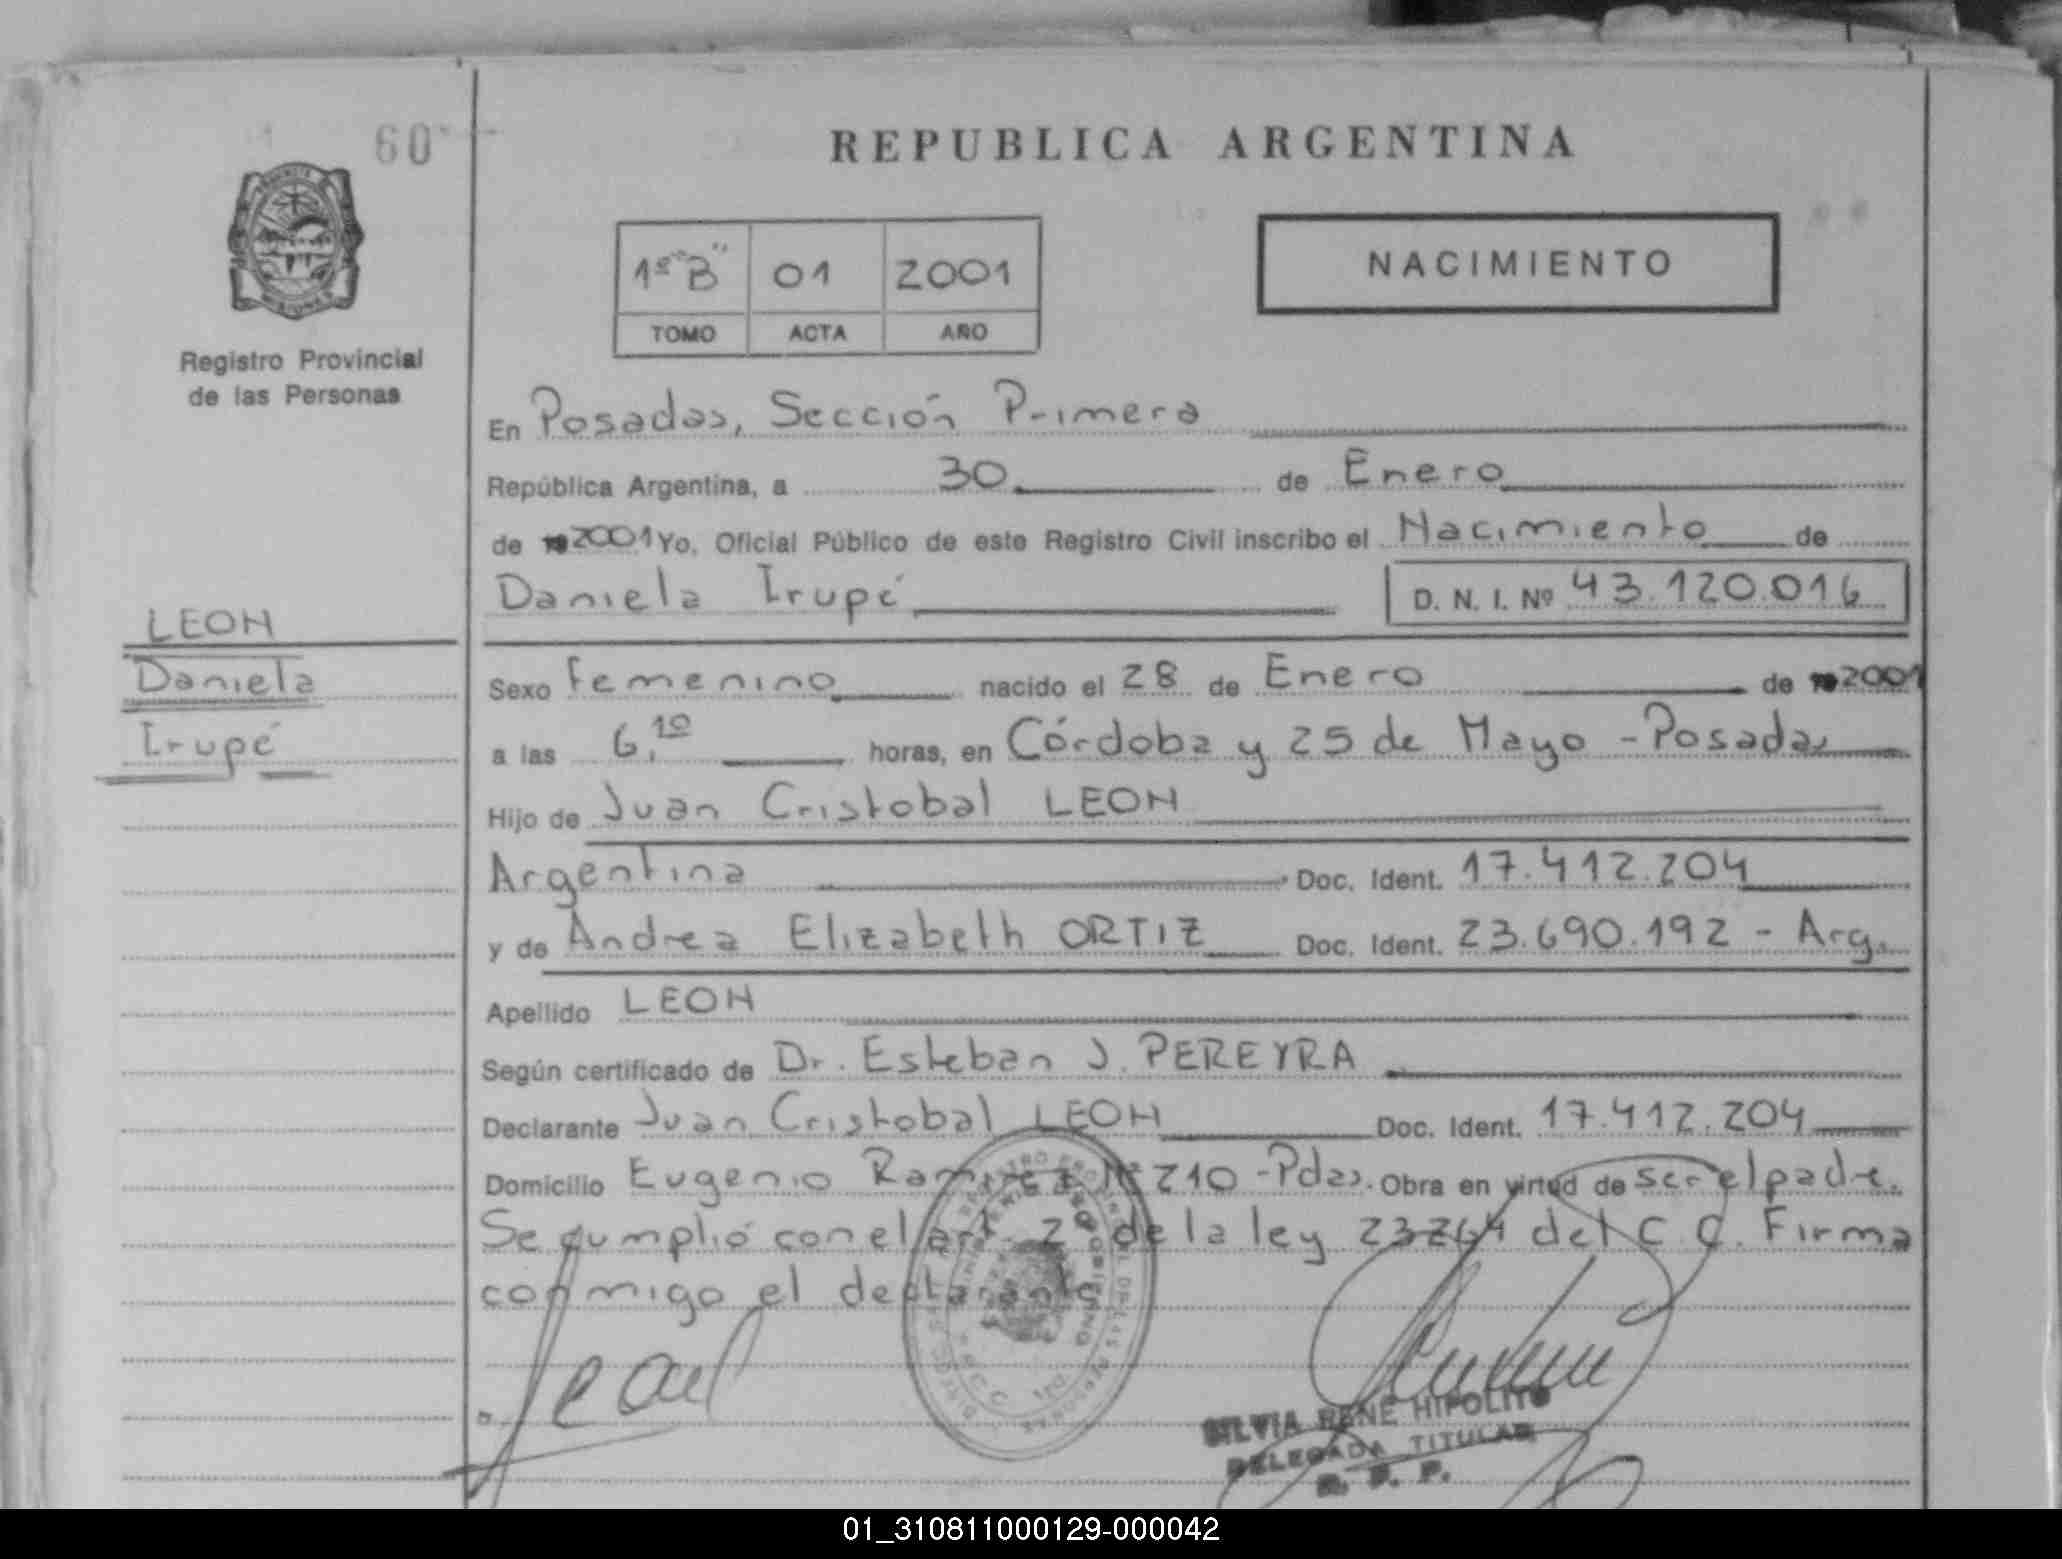 60
REPUBLICA ARGENTINA
1º "B" 01 2001
TOMO ACTA AÑO
NACIMIENTO
Registro Provincial
de las Personas
En Posadas, Sección Primera
República Argentina, a 30 de Enero
de 2001 Yo, Oficial Público de este Registro Civil inscribo el Nacimiento de
Daniela Irupé D. N. I. Nº 43.120.016
LEON
Daniela
Irupé
Sexo Femenino nacido el 28 de Enero de 2001
a las 6,10 horas, en Córdoba y 25 de Mayo - Posadas
Hijo de Juan Cristobal LEON
Argentina Doc. Ident. 17.412.204
y de Andrea Elizabeth ORTIZ Doc. Ident. 23.690.192 - Arg.
Apellido LEON
Según certificado de Dr. Esteban J. PEREYRA
Declarante Juan Cristobal LEON Doc. Ident. 17.412.204
Domicilio Eugenio Ramirez Nº 210 - Pdas. Obra en virtud de ser el padre.
Se cumplió con el art. 2º de la ley 23264 del C. C. Firma
conmigo el declarante
SILVIA RENE HIPOLITO
DELEGADA TITULAR
R. P. P.
01_310811000129-000042